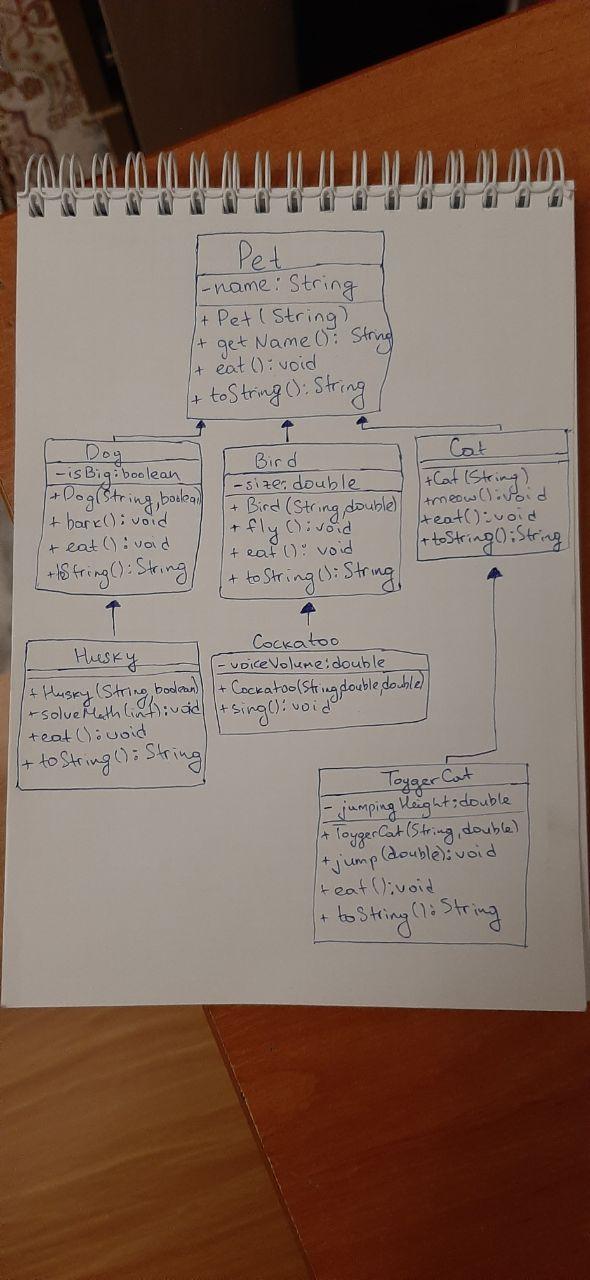 Pet
-name: String
+ Pet(String)
+ getName(): String
+ eat(): void
+ toString(): String
Dog
-isBig:boolean
+Dog(String,boolean)
+ bark(): void
+ eat(): void
+toString(): String
Bird
-size: double
+ Bird(String,double)
+ fly(): void
+ eat(): void
+ toString(): String
Cat
+Cat(String)
+meow():void
+eat():void
+toString():String
Husky
+ Husky(String,boolean)
+solveMath(int):void
+eat():void
+ toString(): String
Cockatoo
-voiceVolume:double
+Cockatoo(String,double,double)
+sing(): void
ToygerCat
- jumpingHeight:double
+ToygerCat(String,double)
+jump(double):void
+eat():void
+ toString(): String